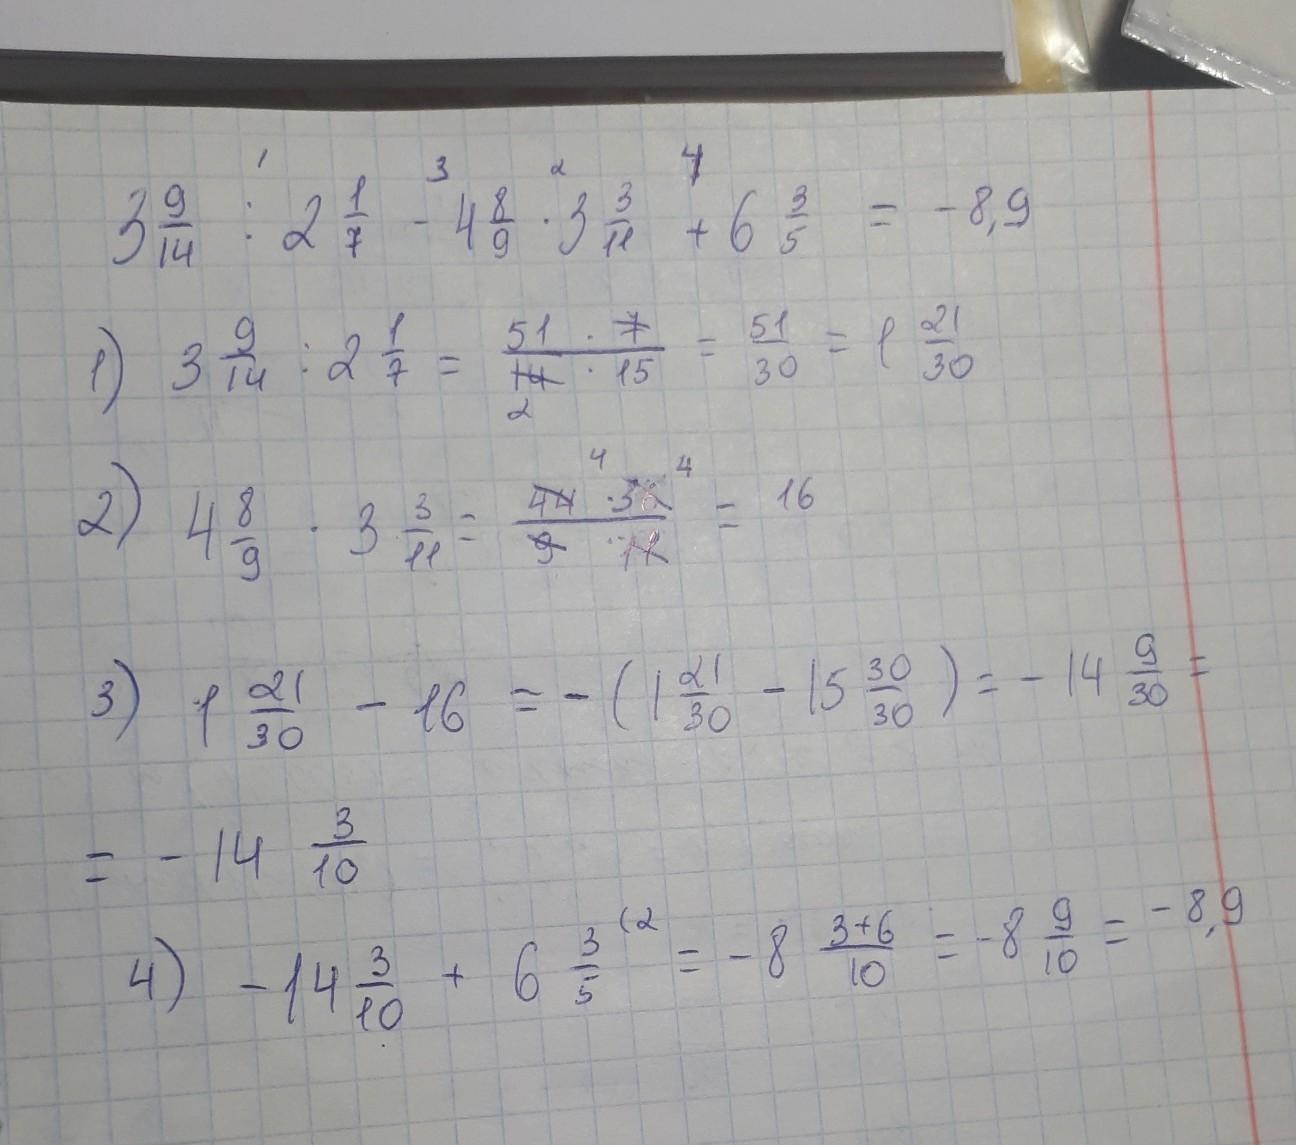 3 9/14 : 2 1/7 - 4 8/9 · 3 3/11 + 6 3/5 = -8,9
1) 3 9/14 : 2 1/7 = 51 · 7 / 14 · 15 = 51/30 = 1 21/30
2) 4 8/9 · 3 3/11 = 44 · 36 / 9 · 11 = 16
3) 1 21/30 - 16 = -(1 21/30 - 15 30/30) = -14 9/30 =
= -14 3/10
4) -14 3/10 + 6 3/5 (2 = -8 3+6/10 = -8 9/10 = -8,9